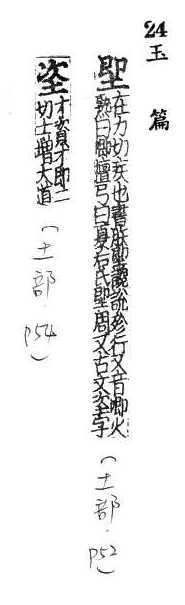 24
玉篇
堲
在力切疾也書朕堲讒說殄行又音唧火
熟曰堲檀弓曰夏后氏堲周又古文垐字
(土部 p52)
垐
才資才即二
切土增大道
(土部 p54)